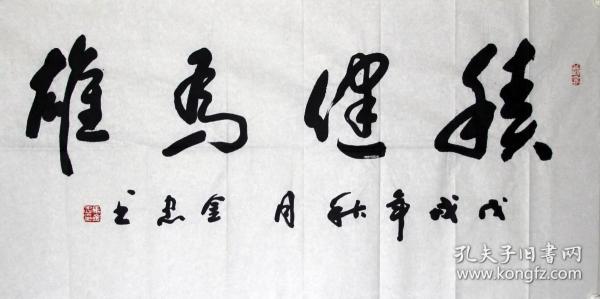 積健為雄
戊戌年秋月 金忠
孔夫子旧书网
www.kongfz.com